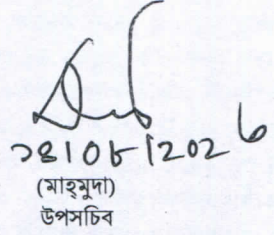 ১৪|০৮|২০২৬
(মাহ্‌মুদা)
উপসচিব